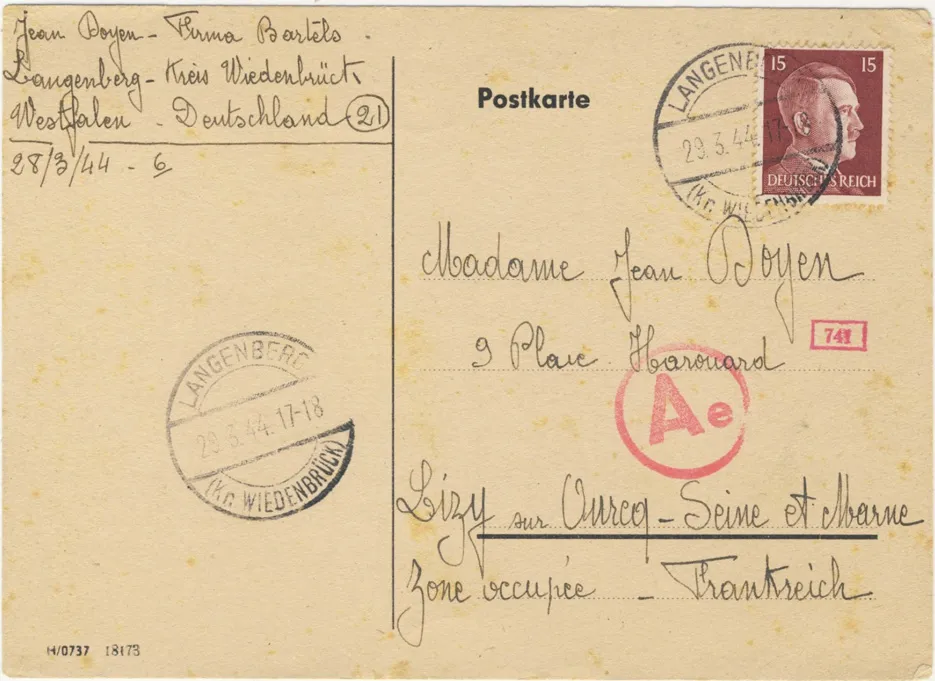 Jean Doyen - Firma Bartels.
Langenberg - Kreis Wiedenbrück.
Westfalen - Deutschland (21)
28/3/44 - 6
Postkarte
LANGENBE
29.3.44.17-18
(Kr. WIEDENBRÜCK)
15 15
DEUTSCHES REICH
Madame Jean Doyen
9 Place Harouard
741
Ae
Lizy sur Ourcq - Seine et Marne
Zone occupée - Frankreich.
LANGENBERG
29.3.44.17-18
(Kr. WIEDENBRÜCK)
H/0737 18173